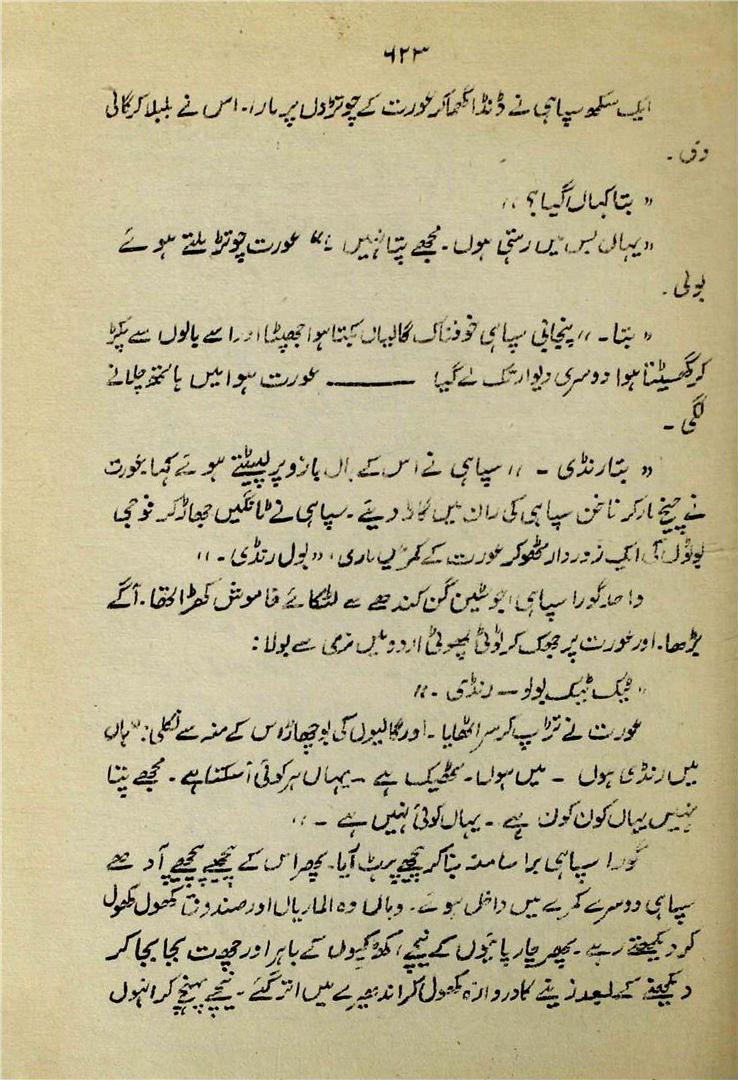 ۶۲۳
ایک سکھ سپاہی نے ڈنڈا گھما کر عورت کے چوتڑوں پر مارا۔ اس نے بلبلا کر گالی
دی۔
" بتا کہاں گیا؟ "
" یہاں بس میں رہتی ہوں۔ مجھے پتا نہیں۔ " عورت چوتڑ ملتے ہوئے
بولی۔
" بتا۔ " پنجابی سپاہی خوفناک گالیاں بکتا ہوا جھپٹا اور اسے بالوں سے پکڑ
کر گھسیٹتا ہوا دوسری دیوار تک لے گیا ——— عورت ہوا میں ہاتھ چلانے
لگی۔
" بتا رنڈی ۔ " سپاہی نے اس کے بال بازو پر لپیٹتے ہوئے کہا عورت
نے چیخ مار کر ناخن سپاہی کی ران میں گاڑ دیئے۔ سپاہی نے ٹانگیں جھاڑ کر فوجی
بوٹوں کی ایک زوردار ٹھوکر عورت کے کمر میں ماری، " بول رنڈی۔ "
واحد گورا سپاہی جو سٹین گن کندھے سے لٹکائے خاموش کھڑا تھا۔ آگے
بڑھا۔ اور عورت پر جھک کر ٹوٹی پھوٹی اردو میں نرمی سے بولا:
" ٹیک ٹیک بولو — رنڈی ۔ "
عورت نے تڑپ کر سر اٹھایا۔ اور گالیوں کی بوچھاڑ اس کے منہ سے نکلی: "ہاں
میں رنڈی ہوں ۔ میں ہوں۔ ٹھیک ہے ۔ یہاں ہر کوئی آ سکتا ہے۔ مجھے پتا
نہیں یہاں کون کون ہے ۔ یہاں کوئی نہیں ہے ۔ "
گورا سپاہی برا سا منہ بنا کر پیچھے ہٹ آیا۔ پھر اس کے پیچھے پیچھے آدھے
سپاہی دوسرے کمرے میں داخل ہوئے۔ وہاں وہ الماریاں اور صندوق کھول کھول
کر دیکھتے رہے۔ پھر چارپائیوں کے نیچے، کھڑکیوں کے باہر اور چھت بجا بجا کر
دیکھنے کے بعد زینے کا دروازہ کھول کر اندھیرے میں اتر گئے۔ نیچے پہنچ کر انہوں